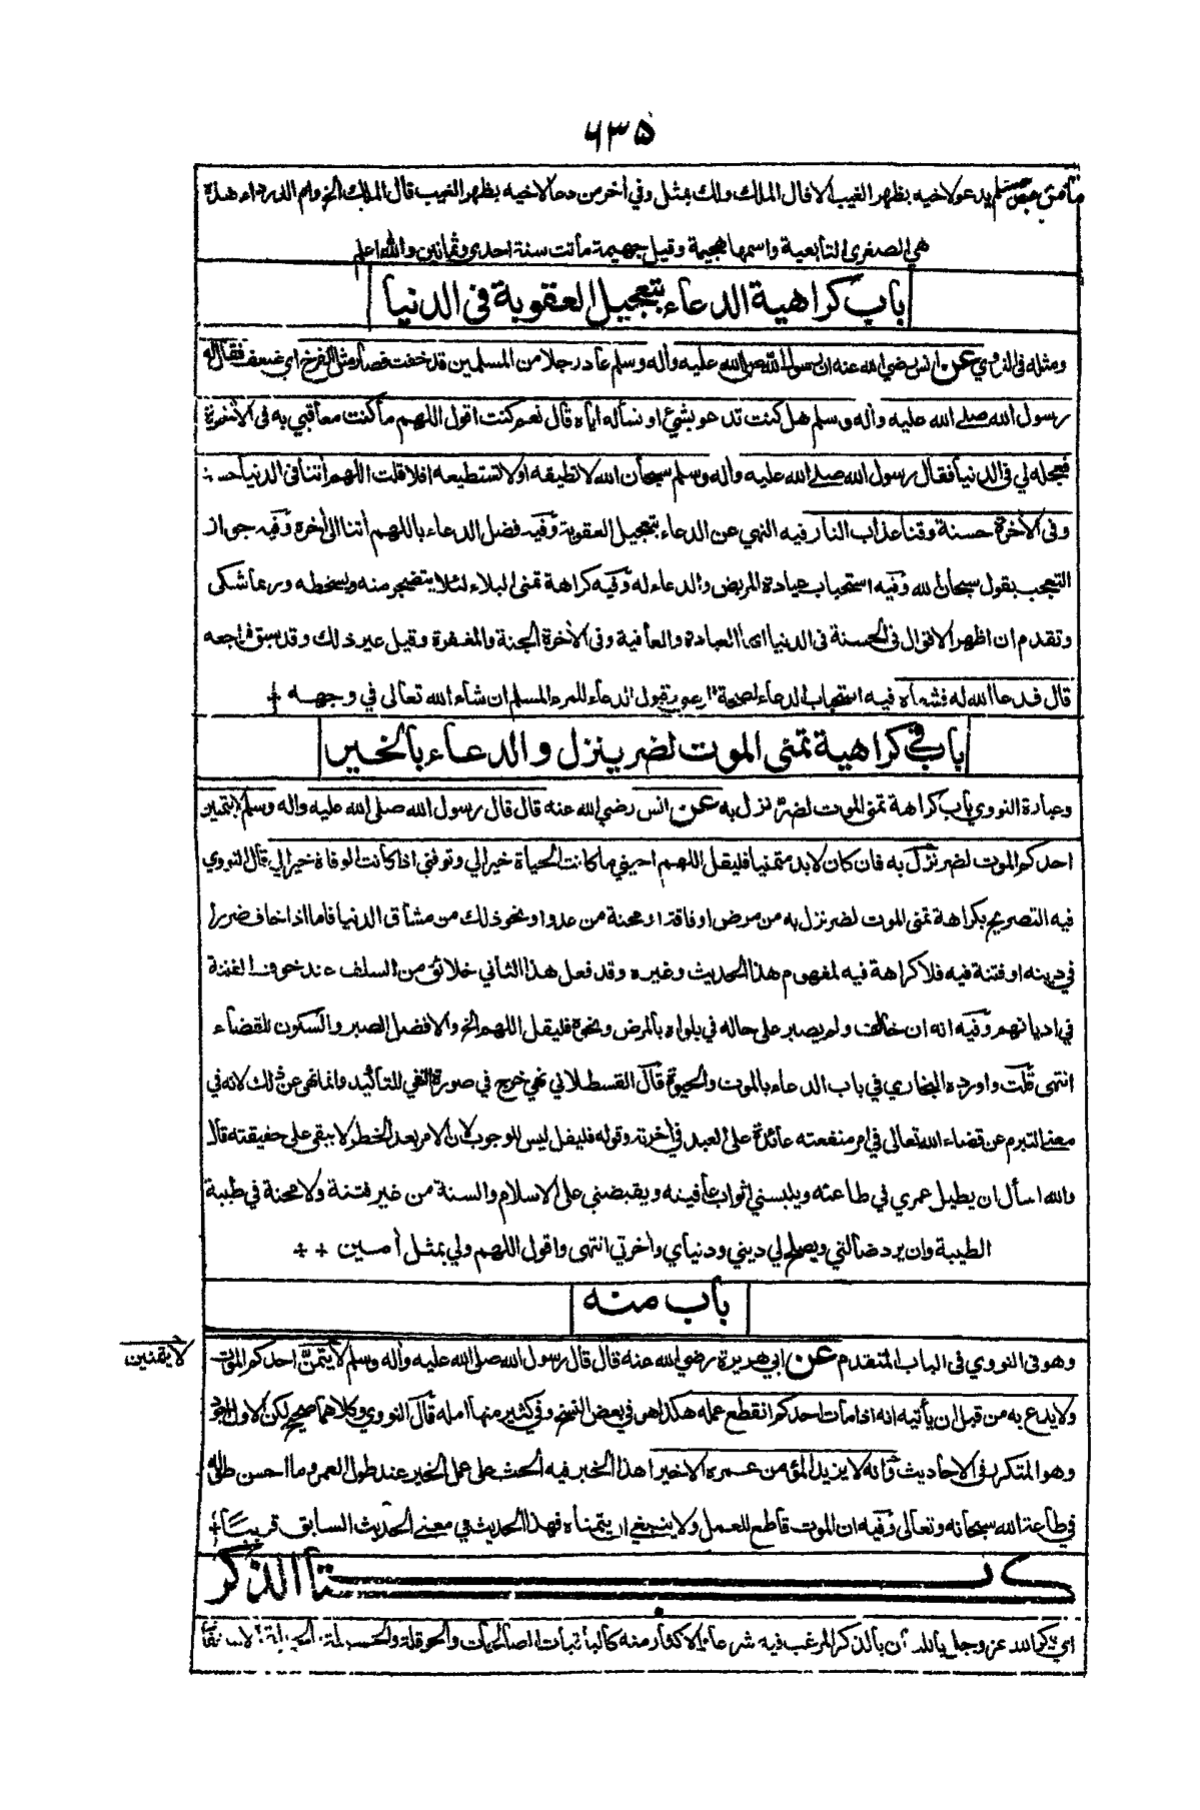 ٦٣٥
ما من عبد مسلم يدعو لاخيه بظهر الغيب الا قال الملك ولك بمثل وفي أخر من دعا لاخيه بظهر الغيب قال الملك الخ وام الدرداء هذة
هي الصغرى التابعية واسمها هجيمة وقيل جهيمة ماتت سنة احدى وثمانين والله اعلم
باب كراهية الدعاء بتعجيل العقوبة فى الدنيا
ومثله فى النووي عن انس رضي الله عنه ان رسول الله صلى الله عليه وأله وسلم عاد رجلا من المسلمين قد خفت فصار مثل الفرخ اي ضعف فقال له
رسول الله صلى الله عليه وأله وسلم هل كنت تدعو بشئ او تسأله اياه قال نعم كنت اقول اللهم ما كنت معاقبي به فى الأخرة
فعجله لي فى الدنيا فقال رسول الله صلى الله عليه وأله وسلم سبحان الله لا تطيقه او لا تستطيعه افلا قلت اللهم أتنا فى الدنيا حسنة
وفى الأخرة حسنة وقنا عذاب النار فيه النهي عن الدعاء بتعجيل العقوبة وفيه فضل الدعاء باللهم أتنا الى أخره وفيه جواز
التعجب بقول سبحان الله وفيه استحباب عيادة المريض والدعاء له وفيه كراهة تمنى البلاء لئلا يتضجر منه ويسخطه وربما شكى
وتقدم ان اظهر الاقوال فى الحسنة فى الدنيا انها العبادة والعافية وفى الأخرة الجنة والمغفرة وقيل غير ذلك وقد سبق فراجعه
قال فدعا الله له فشفاه فيه استحباب الدعاء لصحة ويقول الدعاء للمرء المسلم ان شاء الله تعالى في وجهه +
باب في كراهية تمنى الموت لضر ينزل والدعاء بالخير
وعبارة النووي باب كراهة تمنى الموت لضر نزل به عن انس رضي الله عنه قال قال رسول الله صلى الله عليه وأله وسلم لا يتمنين
احدكم الموت لضر نزل به فان كان لا بد متمنيا فليقل اللهم احيني ما كانت الحياة خيرا لي وتوفني اذا كانت الوفاة خيرا لي قال النووي
فيه التصريح بكراهة تمنى الموت لضر نزل به من مرض او فاقة او محنة من عدو او نحو ذلك من مشاق الدنيا فاما اذا خاف ضررا
في دينه او فتنة فيه فلا كراهة فيه لمفهوم هذا الحديث وغيره وقد فعل هذا الثاني خلائق من السلف عند خوف الفتنة
في اديانهم وفيه انه ان خالف ولم يصبر على حاله في بلواه بالمرض ونحوه فليقل اللهم الخ والافضل الصبر والسكون للقضاء
انتهى قلت واورده البخاري في باب الدعاء بالموت والحيوة قال القسطلاني نهي خرج في صورة النفي للتأكيد وانما نهى عن ذلك لانه في
معنى التبرم عن قضاء الله تعالى في امر منفعته عائدة على العبد في أخرته وقوله فليقل ليس للوجوب لان الامر بعد الخطر لا يبقى على حقيقته قال
والله اسأل ان يطيل عمري في طاعته ويلبسني اثواب عافيته ويقبضني على الاسلام والسنة من غير فتنة ولا محنة في طيبة
الطيبة وان يرد ضالتي ويصلح لي ديني ودنياي وأخرتي انتهى واقول اللهم ولي بمثل أمين + +
باب منه
وهو فى النووي فى الباب المتقدم عن ابي هريرة رضي الله عنه قال قال رسول الله صلى الله عليه وأله وسلم لا يتمن احدكم الموت
لا يتمنين
ولا يدع به من قبل ان يأتيه انه اذا مات احدكم انقطع عمله هكذا هو في بعض النسخ وفي كثير منها امله قال النووي وكلاهما صحيح لكن الاول اجود
وهو المتكرر فى الاحاديث وانه لا يزيد المؤمن عمره الا خيرا هذا الخبر فيه الحث على عمل الخير عند طول العمر وما احسن طوله
في طاعة الله سبحانه وتعالى وفيه ان الموت قاطع للعمل ولا ينبغي ان يتمناه فهذا الحديث في معنى الحديث السابق قريبا +
كتاب الذكر
اي ذكر الله عز وجل بالذكر المرغب فيه شرعا الاكثار منه كالباقيات الصالحات والحوقلة والحسبلة